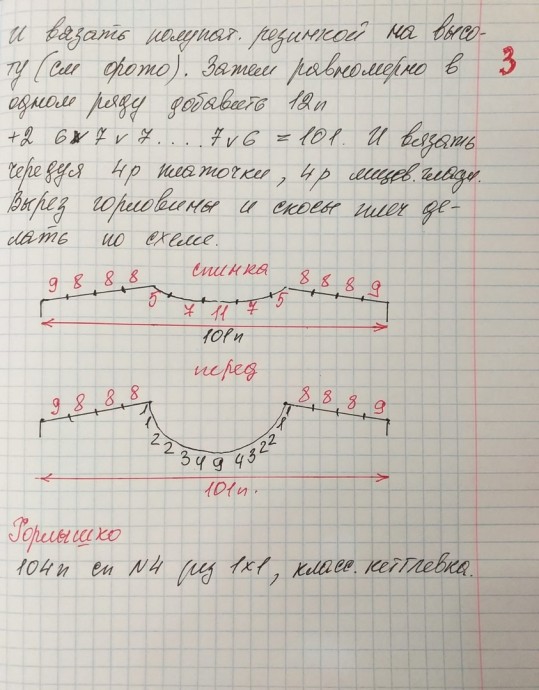 и вязать полупат. резинкой на высо-
ту (см фото). Затем равномерно в
3
одном ряду добавить 12п
+2 6v7v7....7v6 = 101. И вязать
чередуя 4р платочки, 4р лицев. глади.
Вырез горловины и скосы плеч де-
лать по схеме.
спинка
9 8 8 8 5 7 11 7 5 8 8 8 9
101п
перед
9 8 8 8 1 1 2 2 3 4 9 4 3 2 2 1 1 8 8 8 9
101п.
Горлышко
104п сп N4 рез 1x1, класс. кеттлевка.